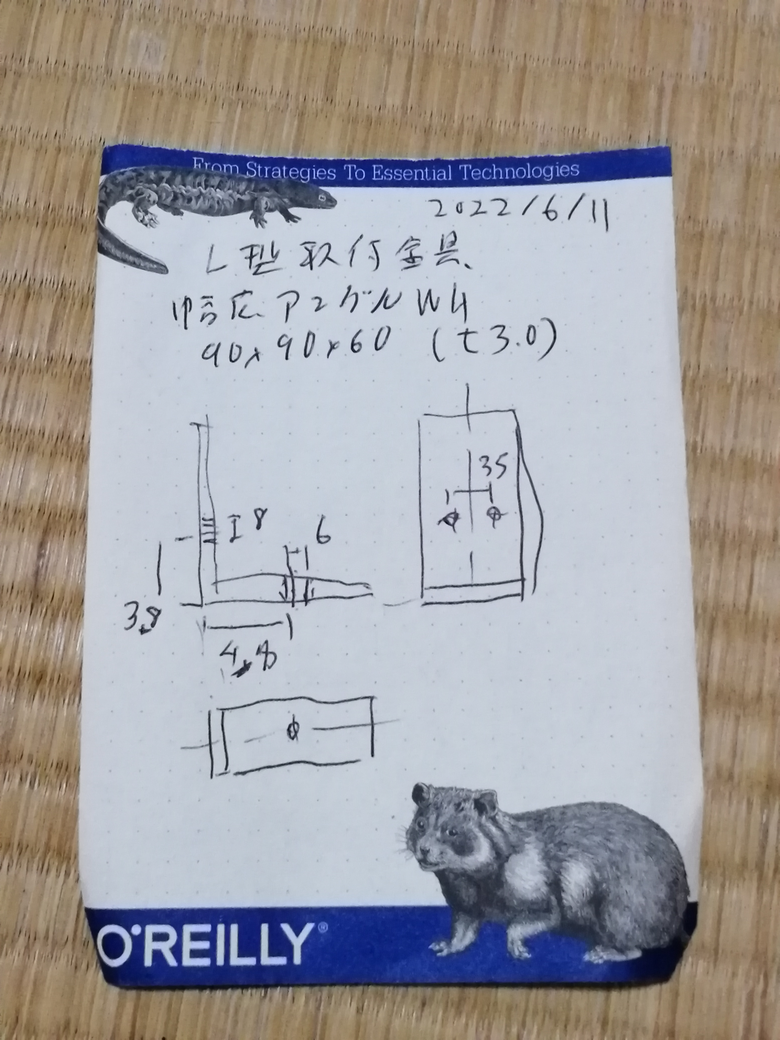 From Strategies To Essential Technologies
2022/6/11
L型取付金具、
幅広アングルWH
90×90×60 (t3.0)
35
8
6
38
48
O'REILLY®